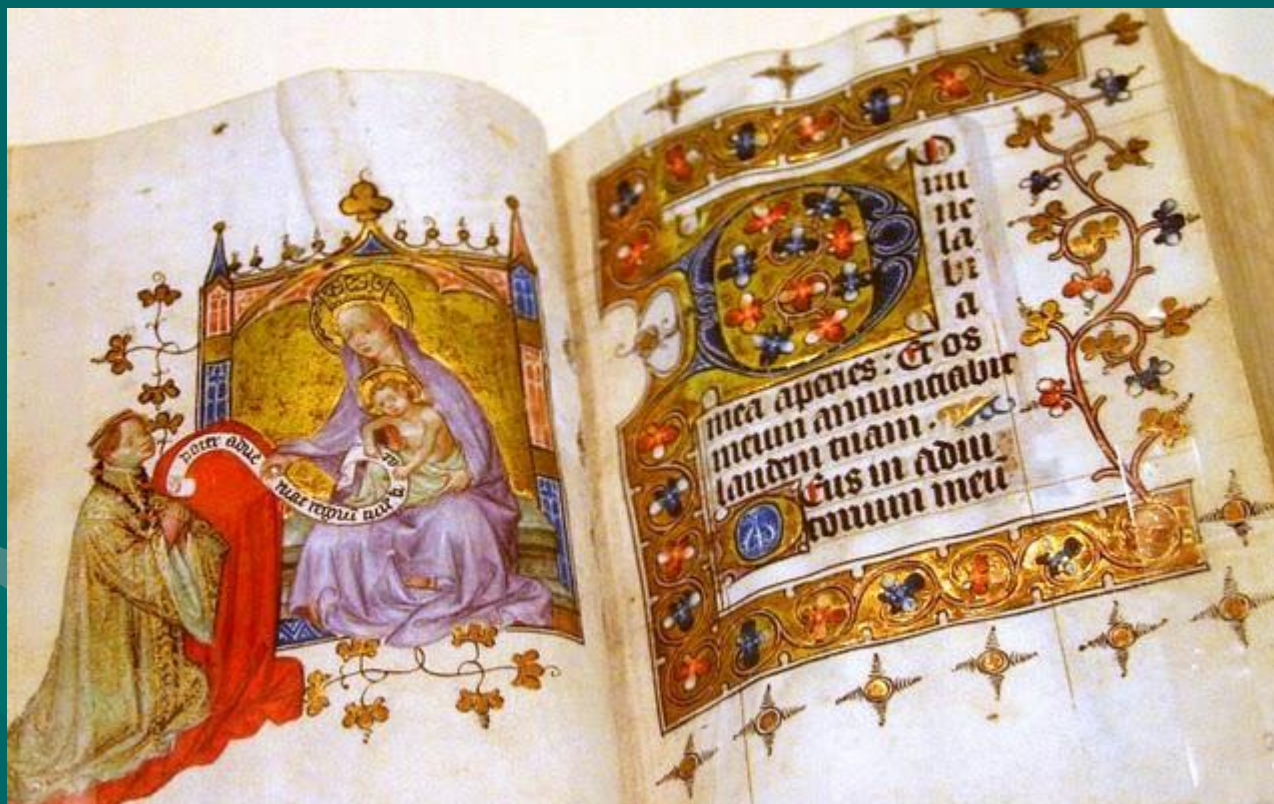 pater adue
niat regnū tuū
DO
mi
ne
la
bi
a
mea aperies: Et os
meum annunciabit
laudem tuam.
DEus in adiu
torium meū